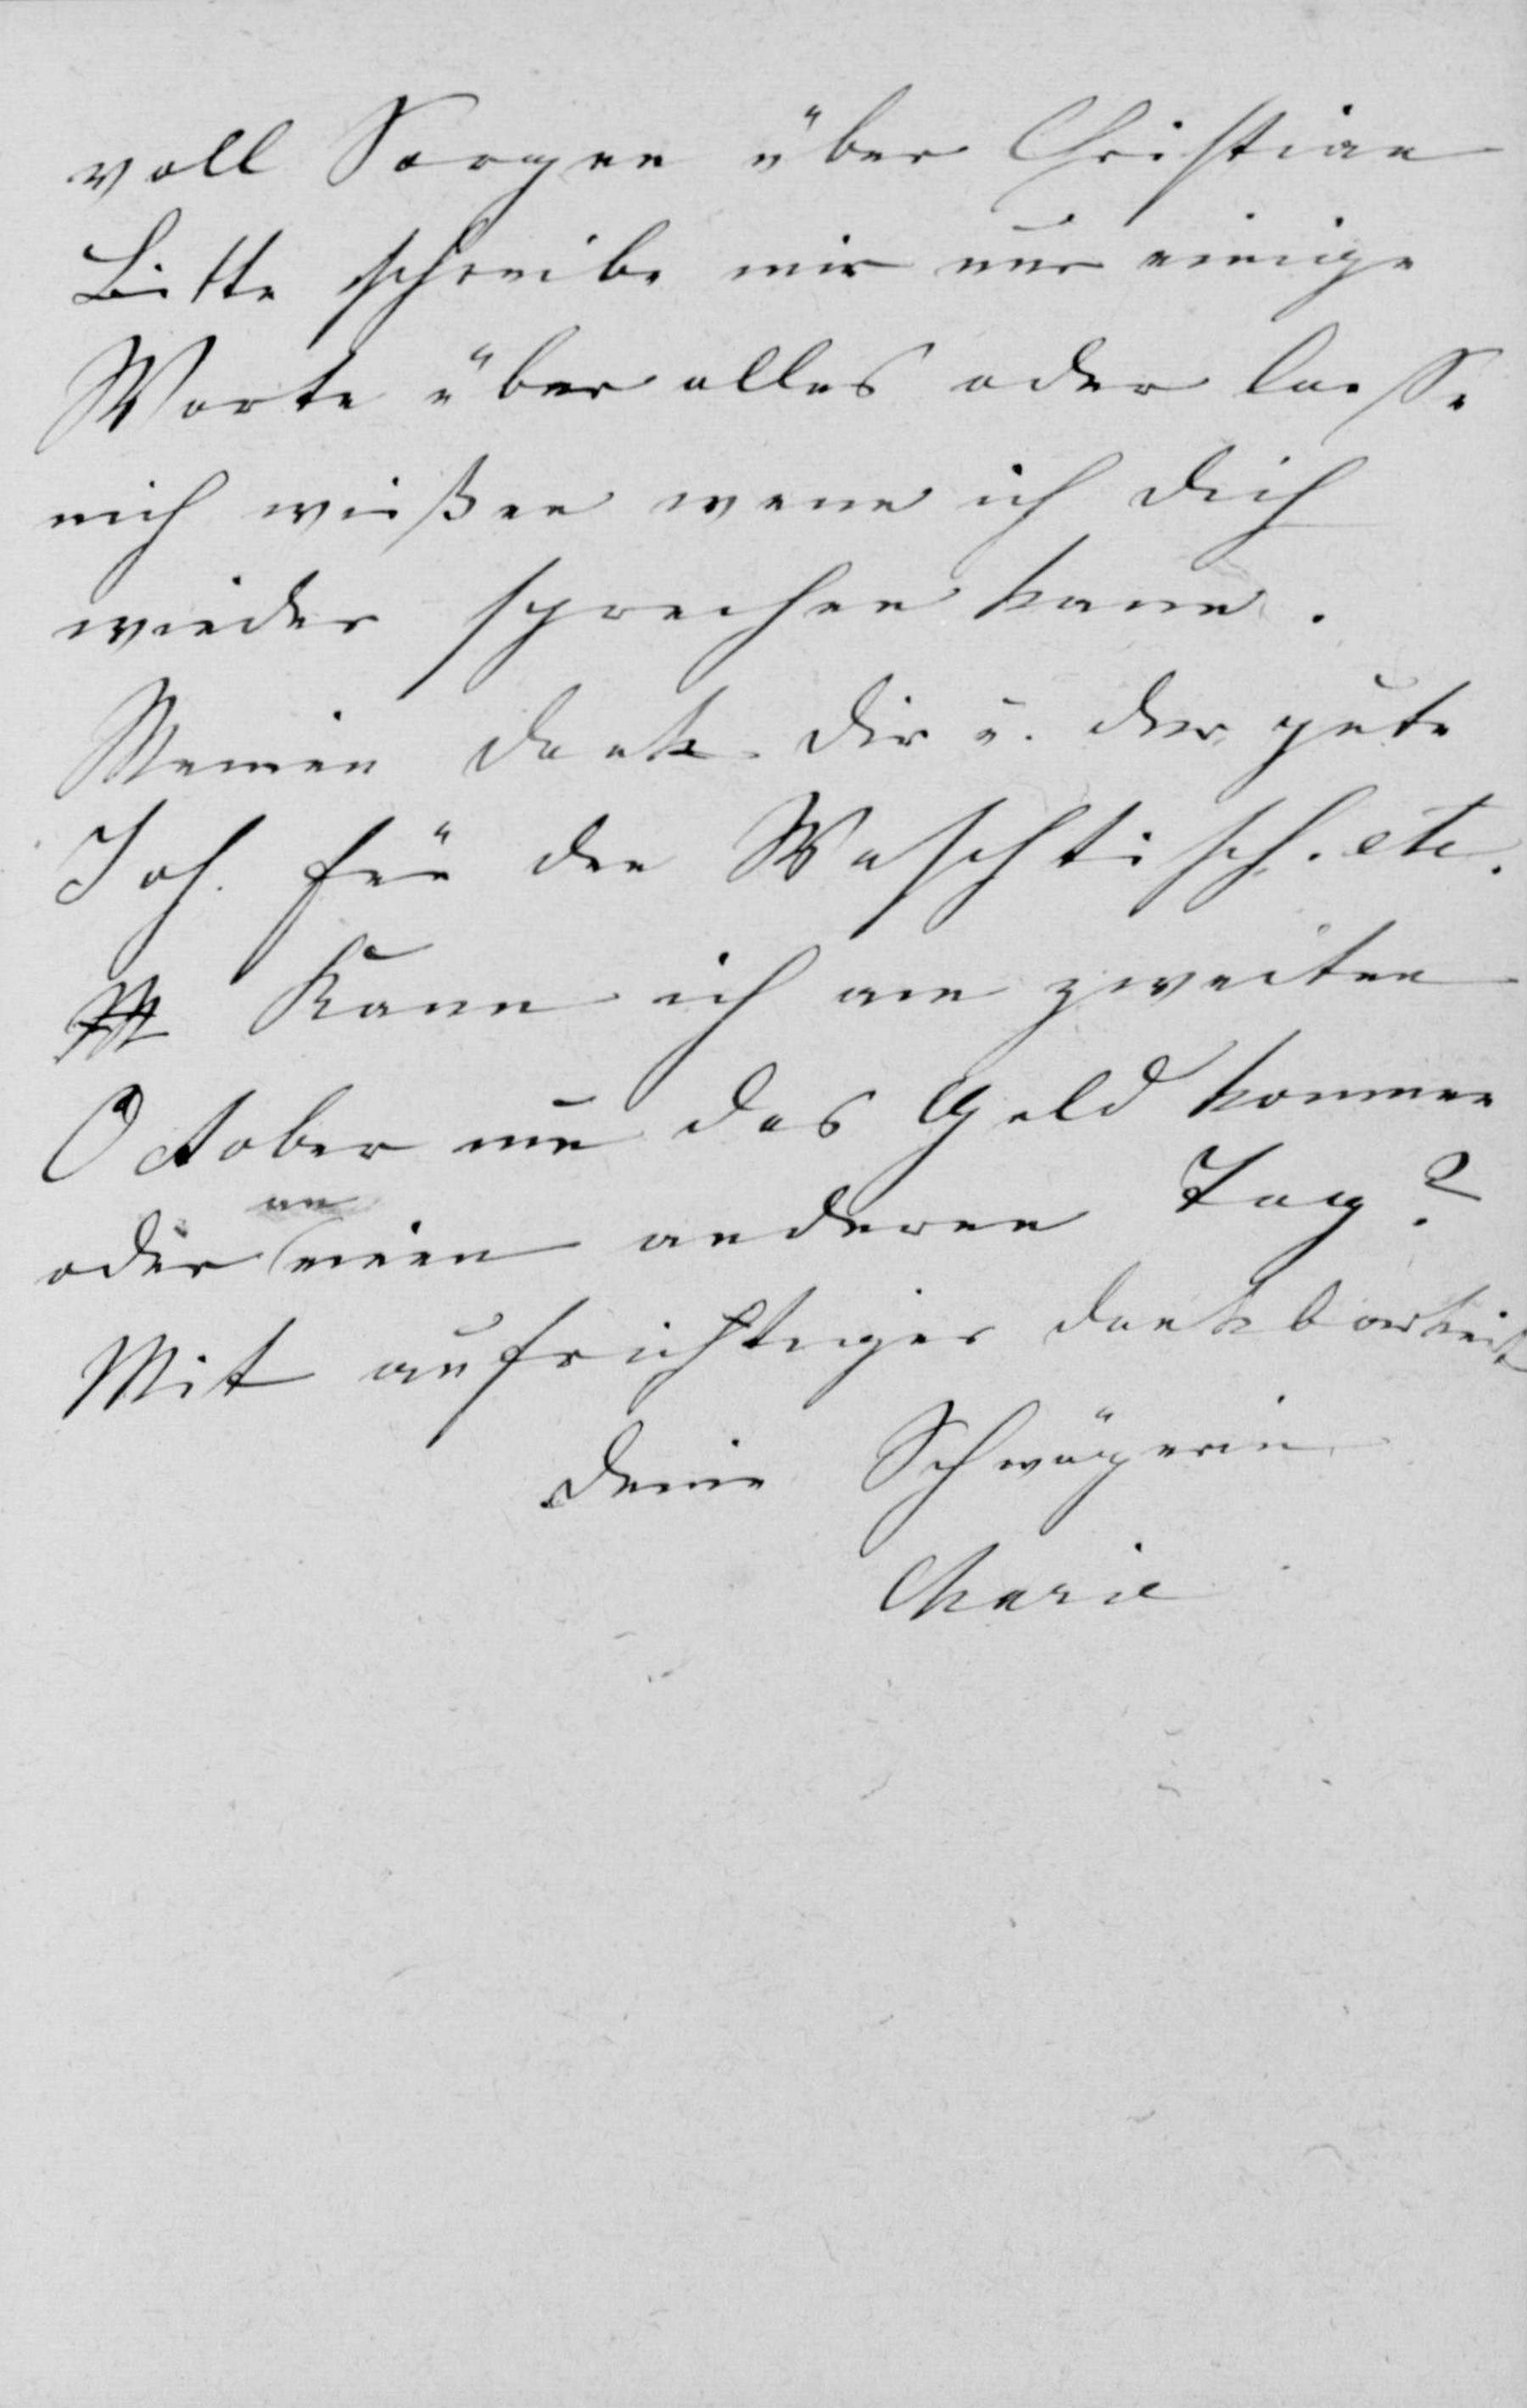 voll Sorgen über Christian
Bitte schreibe mir nur einige
Worte über alles oder lasse
mich wißen wenn ich Dich
wieder sprechen kann.
Meinen Dank Dir u. der gute
Joh. für den Waschtisch. etc.
Kann ich am zweiten
October um das Geld kommen
oder an einen anderen Tag?
Mit aufrichtiger Dankbarkeit
Deine Schwägerin
Marie